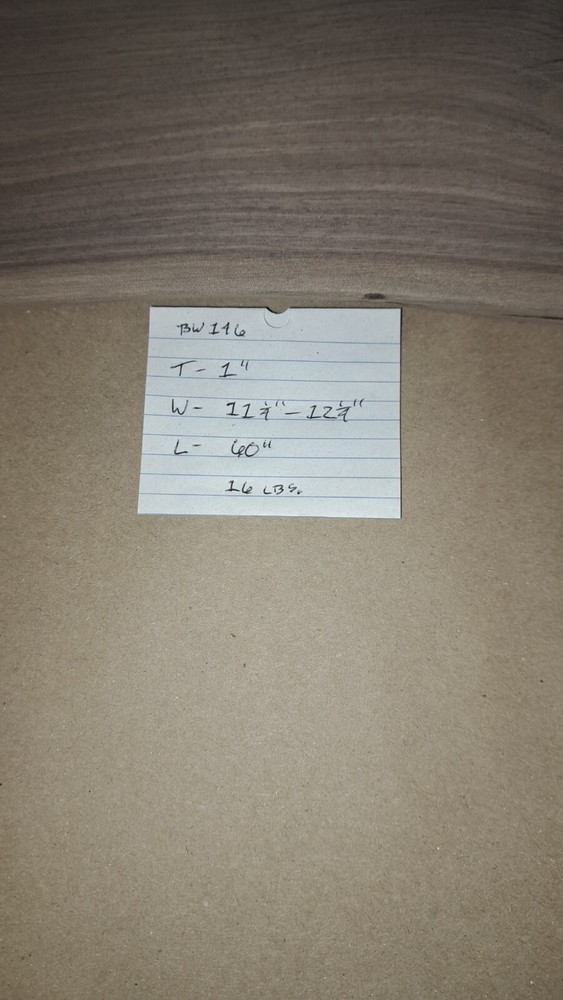 BW 146
T - 1"
W - 11 1/4" - 12 1/4"
L - 60"
16 LBS.